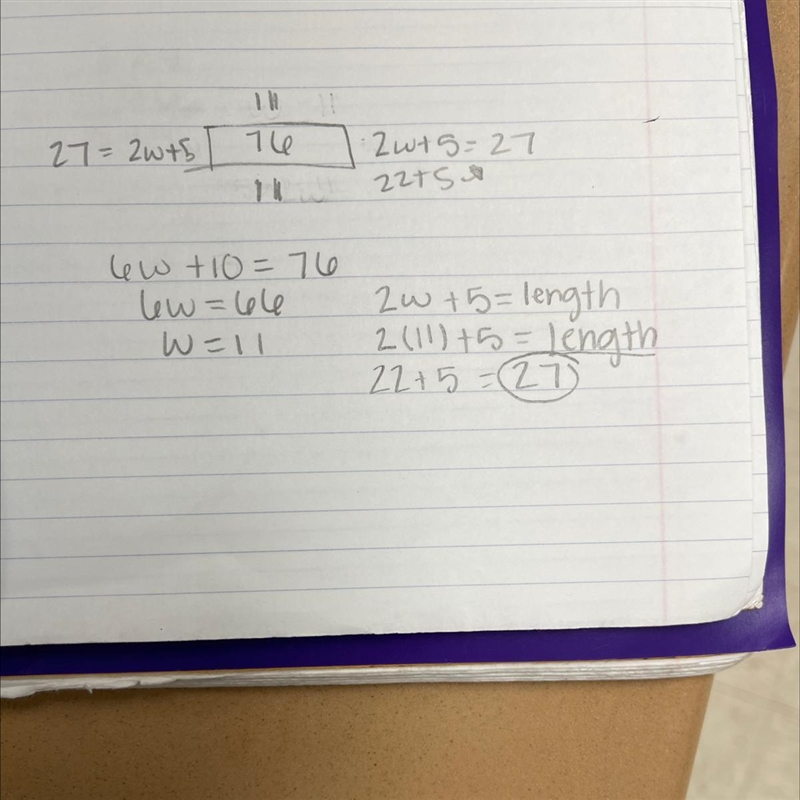 11
27 = 2w+5 76 2w+5 = 27
11 22+5
6w +10 = 76
6w = 66 2w +5 = length
w = 11 2(11)+5 = length
22+5 = 27